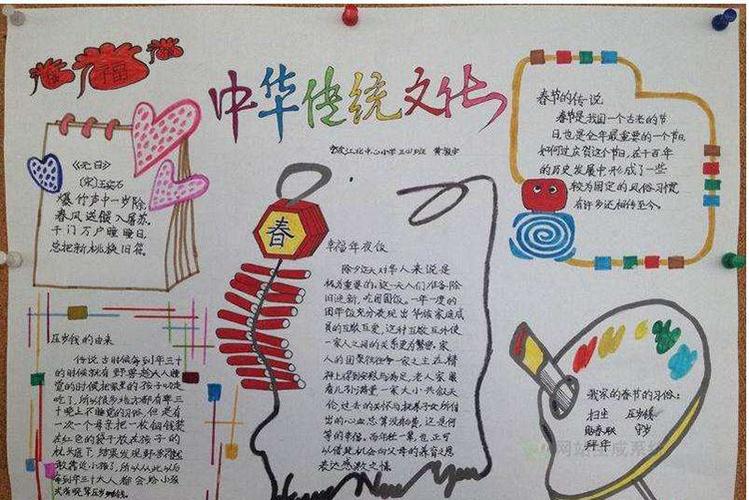 中华传统文化
《元日》
(宋)王安石
爆竹声中一岁除
春风送暖入屠苏.
千门万户曈曈日
总把新桃换旧符.
春节的传说
春节是我国一个古老的节
日也是全年最重要的一个节日
如何过庆贺这个节日,在千百年
的历史发展中形成了一些
较为固定的风俗习惯
有许多还相传至今。
春
幸福年夜饭
除夕这天对华人来说是
极为重要的,这一天人们准备除
旧迎新,吃团圆饭。一年一度的
团年饭充分表现出华族家庭成
员的互敬互爱,这种互敬互外使
一家人之间的关系更为紧密.家
人的团聚往往令一家之主在精
神上得到安慰与满足,老人家眼
看儿孙满堂一家大小共叙天
伦.过去的关怀与抚养子女所付
出的心血总算没白费,这是何
等的幸福.而年轻一辈,也正可
以借此机会向父母的养育之恩
表达感激之情
压岁钱的由来
传说古时候每到年三十
的时候就有
一次一个母亲把一枚铜钱装
在红色的袋子放在孩子的
枕头底下
我家的春节的习俗:
扫尘 压岁钱
贴春联 守岁
拜年